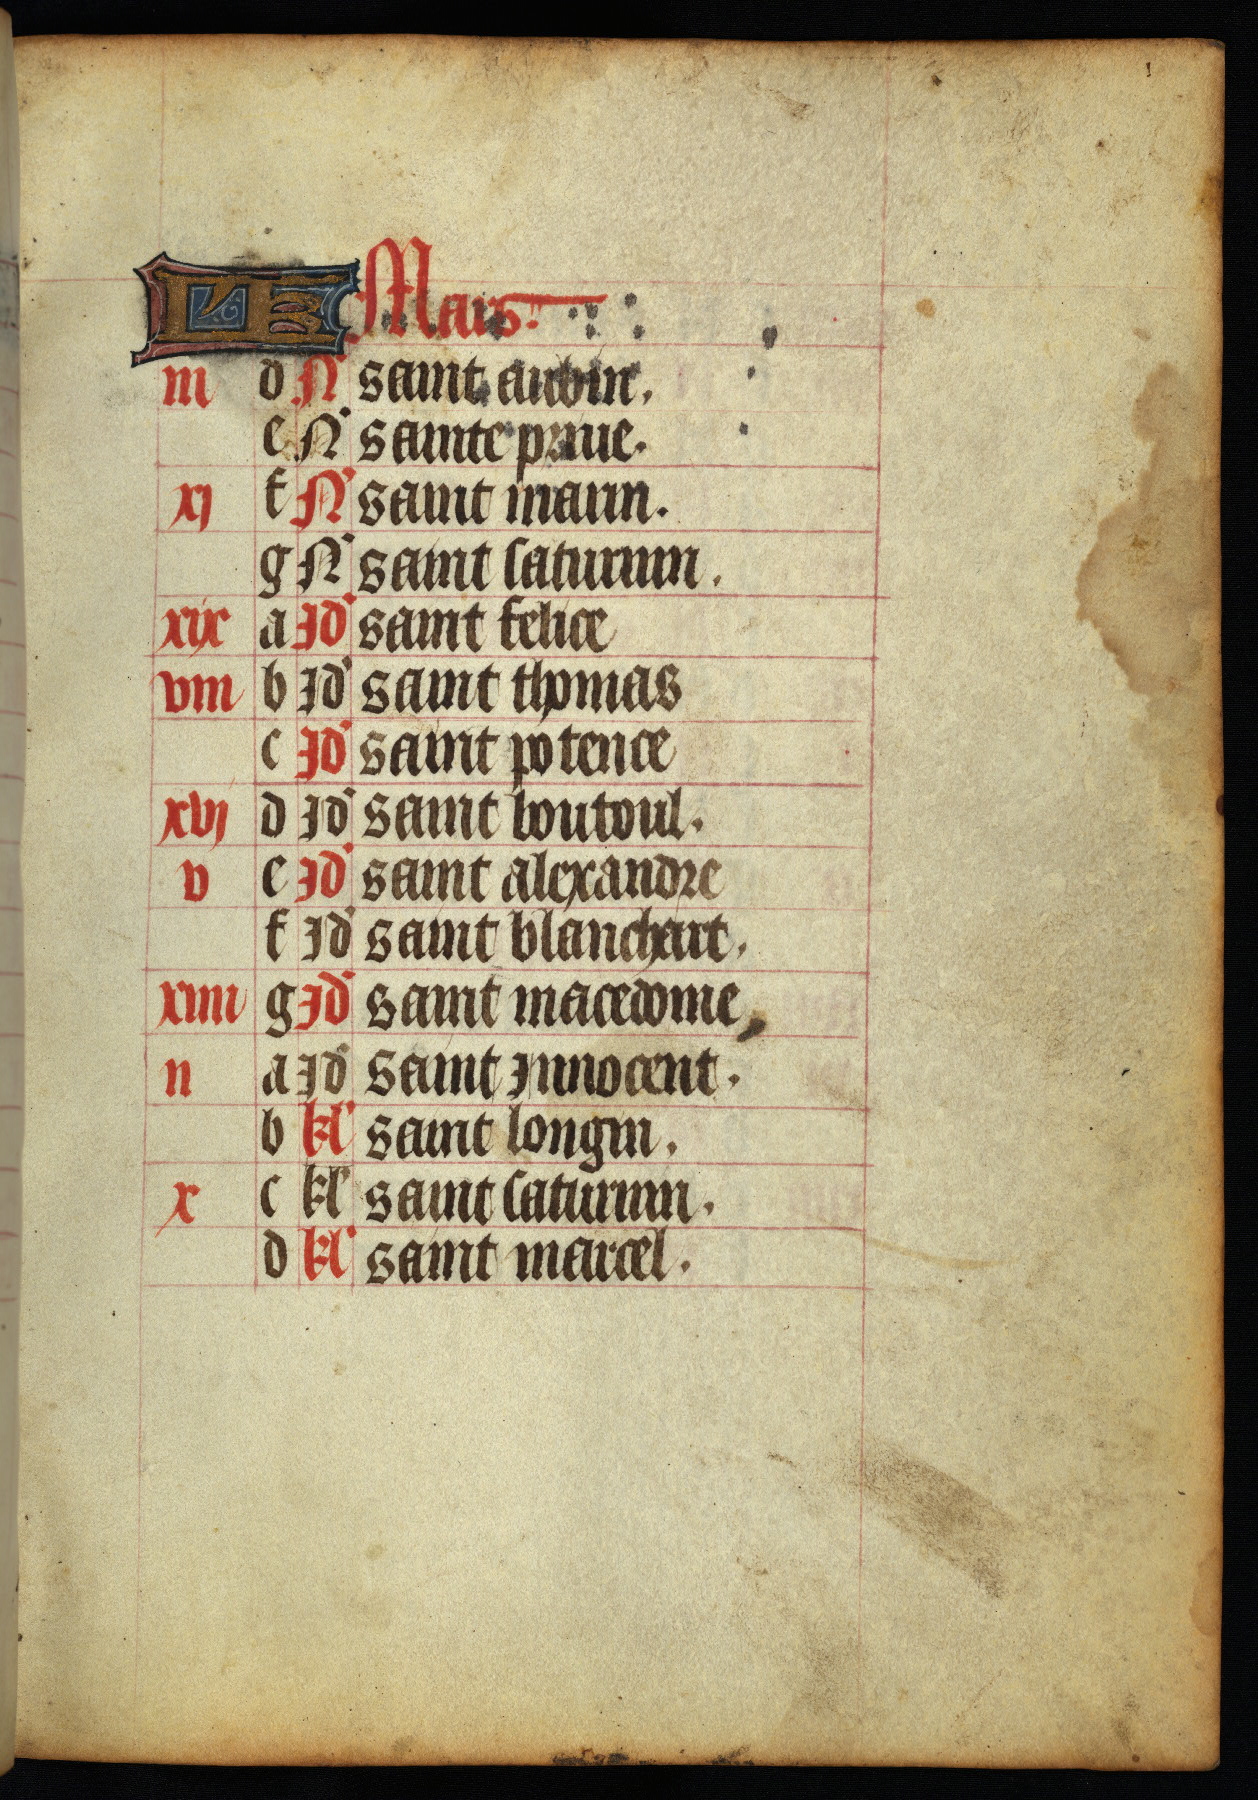 KL Mars.
iii d N saint aubin.
e N sainte priue.
xi f N saint marin.
g N saint saturnin.
xix a Id saint felice
viii b Id saint thomas
c Id saint potence
xvi d Id saint boutoul.
v e Id saint alexandre
f Id saint blanchart.
xiiii g Id saint macedoine,
ii a Id saint Innocent.
b kl saint longin.
x c kl saint saturnin.
d kl saint marcel.